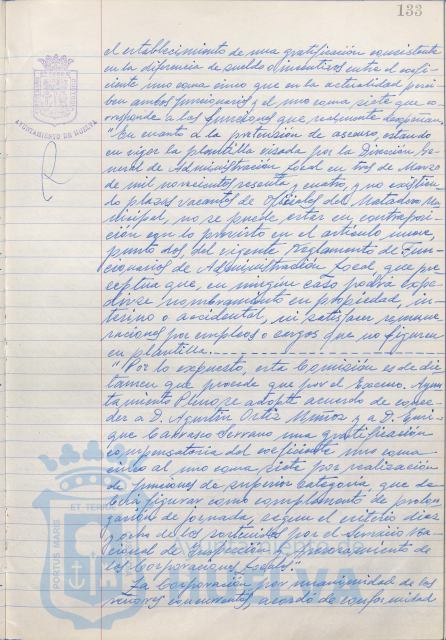 133
el establecimiento de una gratificación consistente
en la diferencia de sueldo o incentivos entre el coefi-
ciente uno coma cinco que en la actualidad perci-
ben ambos funcionarios y el uno coma siete que co-
rresponde a las funciones que realmente desempeñan.
AYUNTAMIENTO DE HUELVA
"En cuanto a la pretensión de ascenso, estando
en vigor la plantilla visada por la Dirección Ge-
neral de Administración Local en tres de Marzo
de mil novecientos sesenta y cuatro, y no existien-
do plazas vacantes de Oficiales del Matadero Mu-
nicipal, no se puede estar en contraposi-
ción con lo previsto en el artículo nueve,
punto dos, del vigente Reglamento de Fun-
cionarios de Administración Local, que pre-
ceptua que, en ningún caso podrá expe-
dirse nombramiento en propiedad, in-
terino o accidental, ni satisfacer remune-
raciones por empleos o cargos que no figuren
en plantilla.
"Por lo expuesto, esta Comisión es de dic-
tamen que procede que por el Excmo. Ayun-
tamiento Pleno se adopte acuerdo de conce-
der a D. Agustín Ortiz Muñoz y a D. Enri-
que Carrasco Serrano una gratificación
compensatoria del coeficiente uno coma
cinco al uno coma siete por realización
de funciones de superior categoría, que de-
berá figurar como complemento de prolon-
gación de jornada, según el criterio diez
y ocho de los sostenidos por el Servicio Na-
cional de Inspección y Asesoramiento de
las Corporaciones Locales."
La Corporación por unanimidad de los
señores concurrentes, acordó de conformidad
PORTUS MARIS
ET TERRE
HUELVA